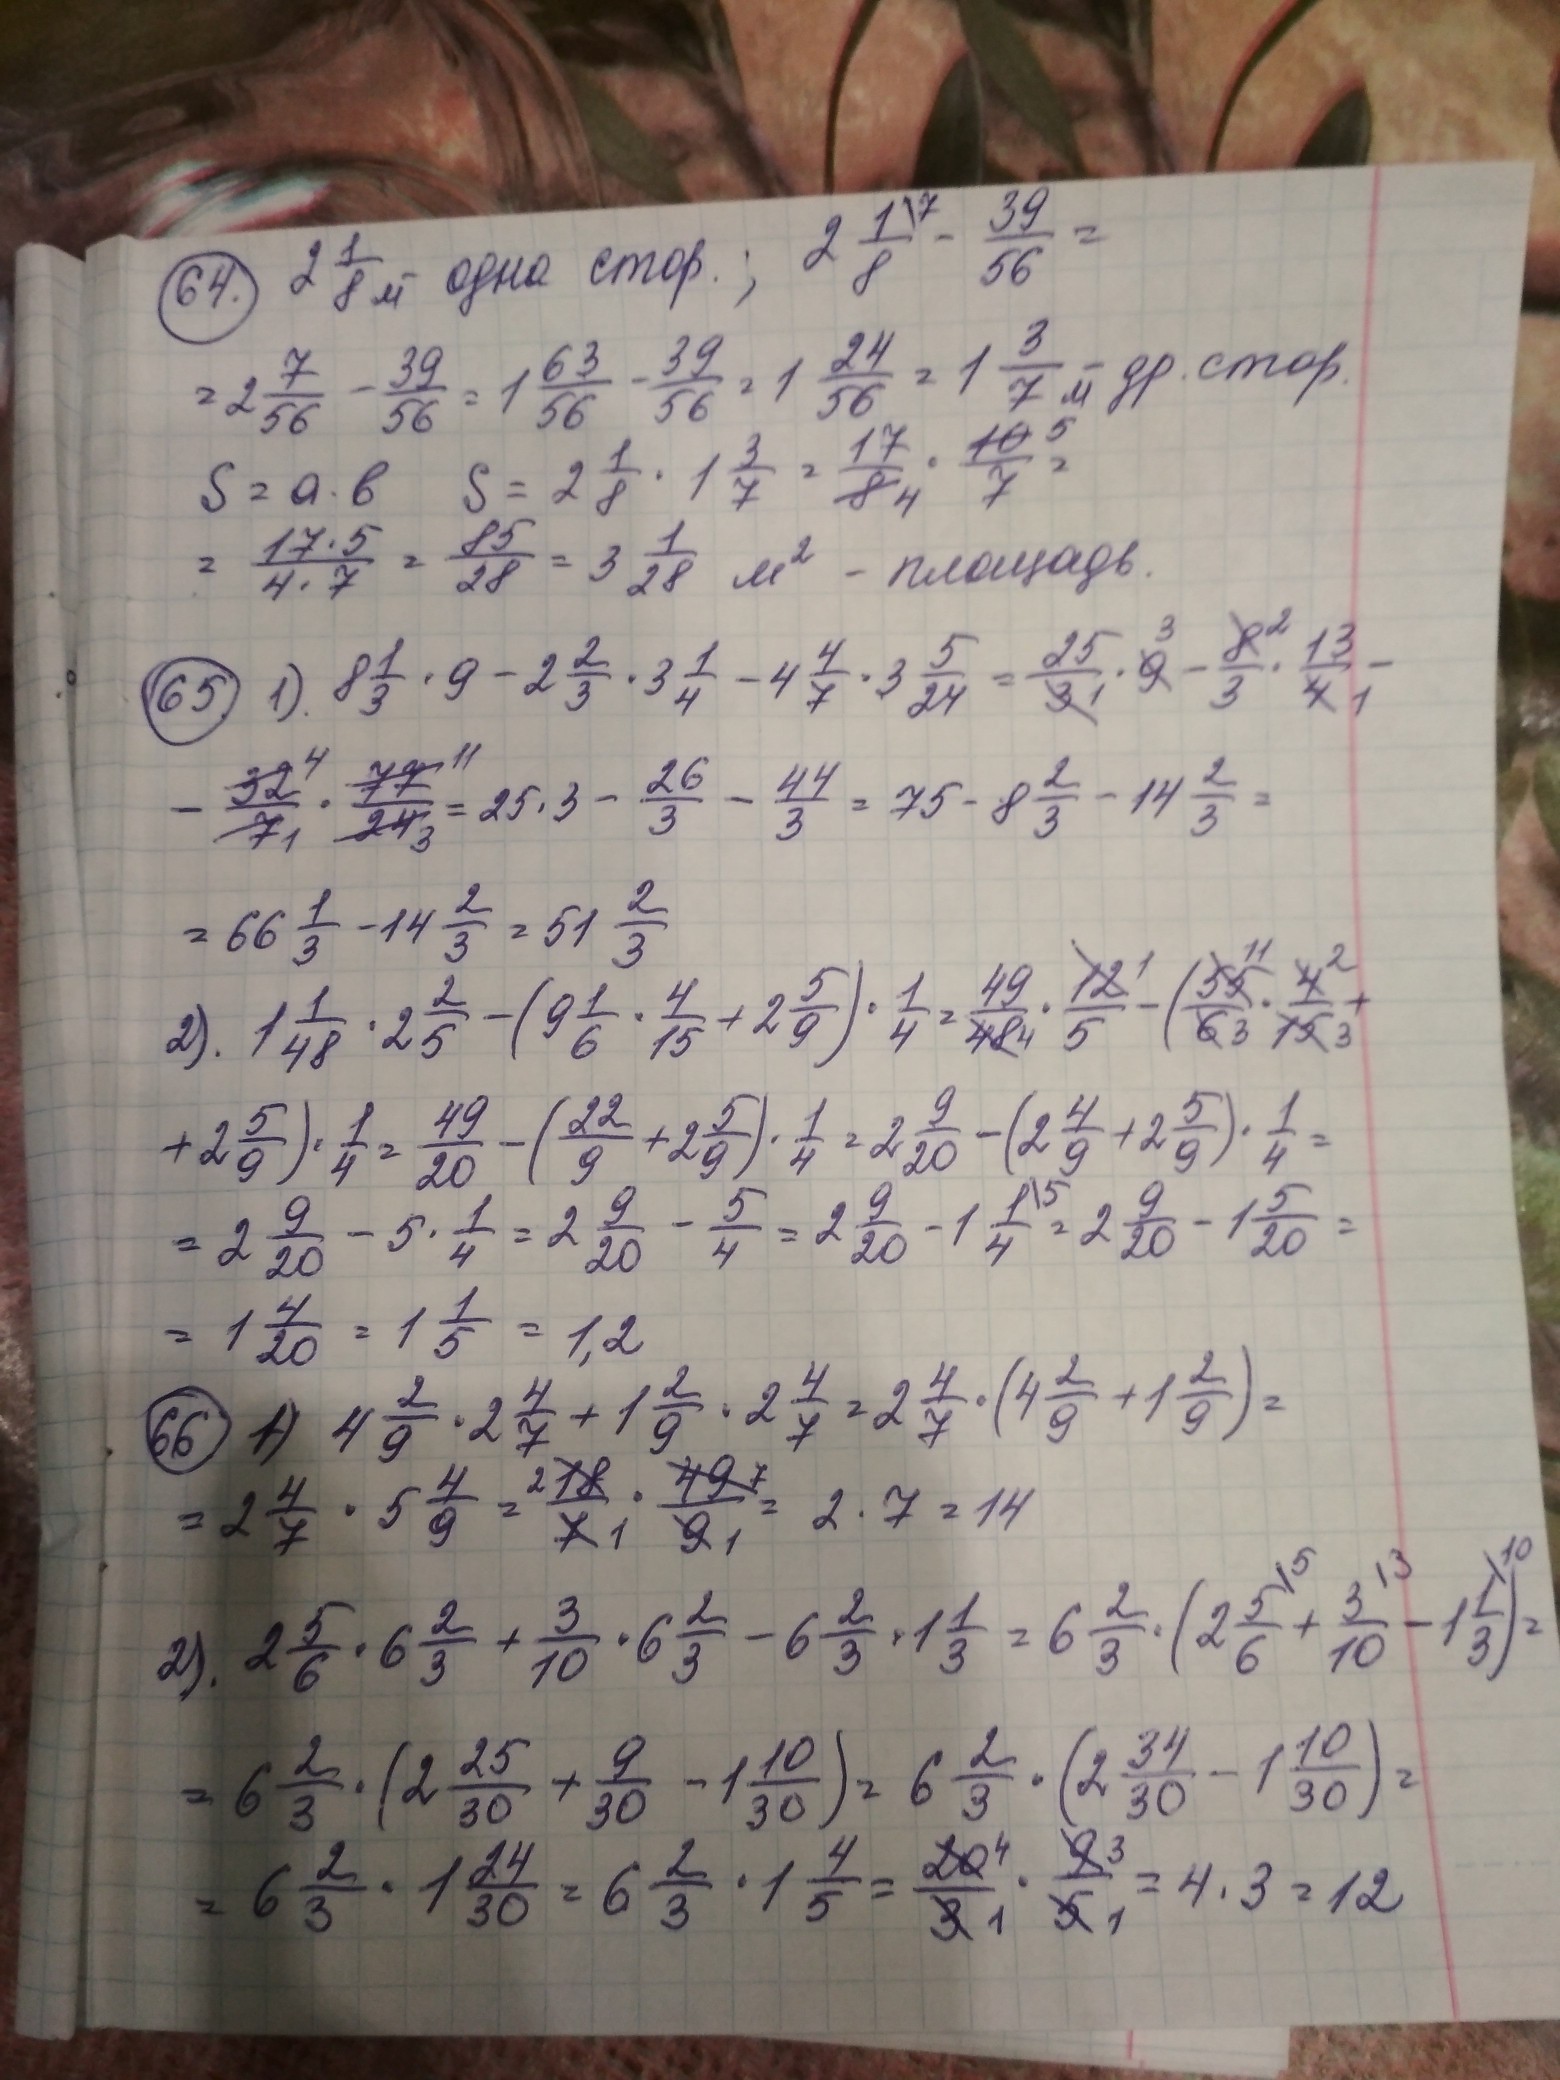 64. 2 1/8 м одна стор.; 2 1/8 \7 - 39/56 =
= 2 7/56 - 39/56 = 1 63/56 - 39/56 = 1 24/56 = 1 3/7 м - др. стор.
S = a · b   S = 2 1/8 · 1 3/7 = 17/8 4 · 10 5/7 =
= 17·5/4·7 = 85/28 = 3 1/28 м² - площадь.
65 1). 8 1/3 · 9 - 2 2/3 · 3 1/4 - 4 4/7 · 3 5/24 = 25/3 1 · 9 3 - 8 2/3 · 13/4 1 -
- 32 4/7 1 · 77 11/24 3 = 25·3 - 26/3 - 44/3 = 75 - 8 2/3 - 14 2/3 =
= 66 1/3 - 14 2/3 = 51 2/3
2). 1 1/48 · 2 2/5 - (9 1/6 · 4/15 + 2 5/9) · 1/4 = 49/48 4 · 12 1/5 - (55 11/6 3 · 4 2/15 3 +
+ 2 5/9) · 1/4 = 49/20 - (22/9 + 2 5/9) · 1/4 = 2 9/20 - (2 4/9 + 2 5/9) · 1/4 =
= 2 9/20 - 5 · 1/4 = 2 9/20 - 5/4 = 2 9/20 - 1 1/4 \5 = 2 9/20 - 1 5/20 =
= 1 4/20 = 1 1/5 = 1,2
66 1) 4 2/9 · 2 4/7 + 1 2/9 · 2 4/7 = 2 4/7 · (4 2/9 + 1 2/9) =
= 2 4/7 · 5 4/9 = 2 18/7 1 · 49 7/9 1 = 2 · 7 = 14
2). 2 5/6 · 6 2/3 + 3/10 · 6 2/3 - 6 2/3 · 1 1/3 = 6 2/3 · (2 5/6 \5 + 3/10 \3 - 1 1/3 \10) =
= 6 2/3 · (2 25/30 + 9/30 - 1 10/30) = 6 2/3 · (2 34/30 - 1 10/30) =
= 6 2/3 · 1 24/30 = 6 2/3 · 1 4/5 = 20 4/3 1 · 9 3/5 1 = 4 · 3 = 12